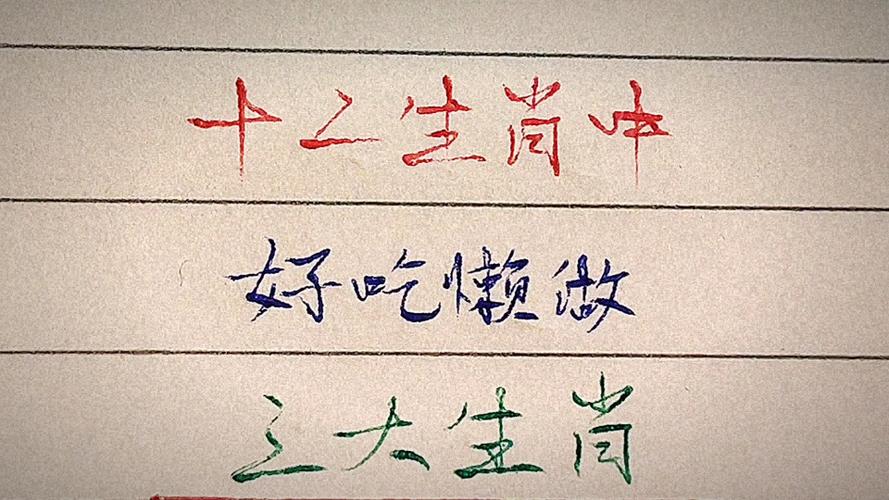 十二生肖中
好吃懒做
三大生肖